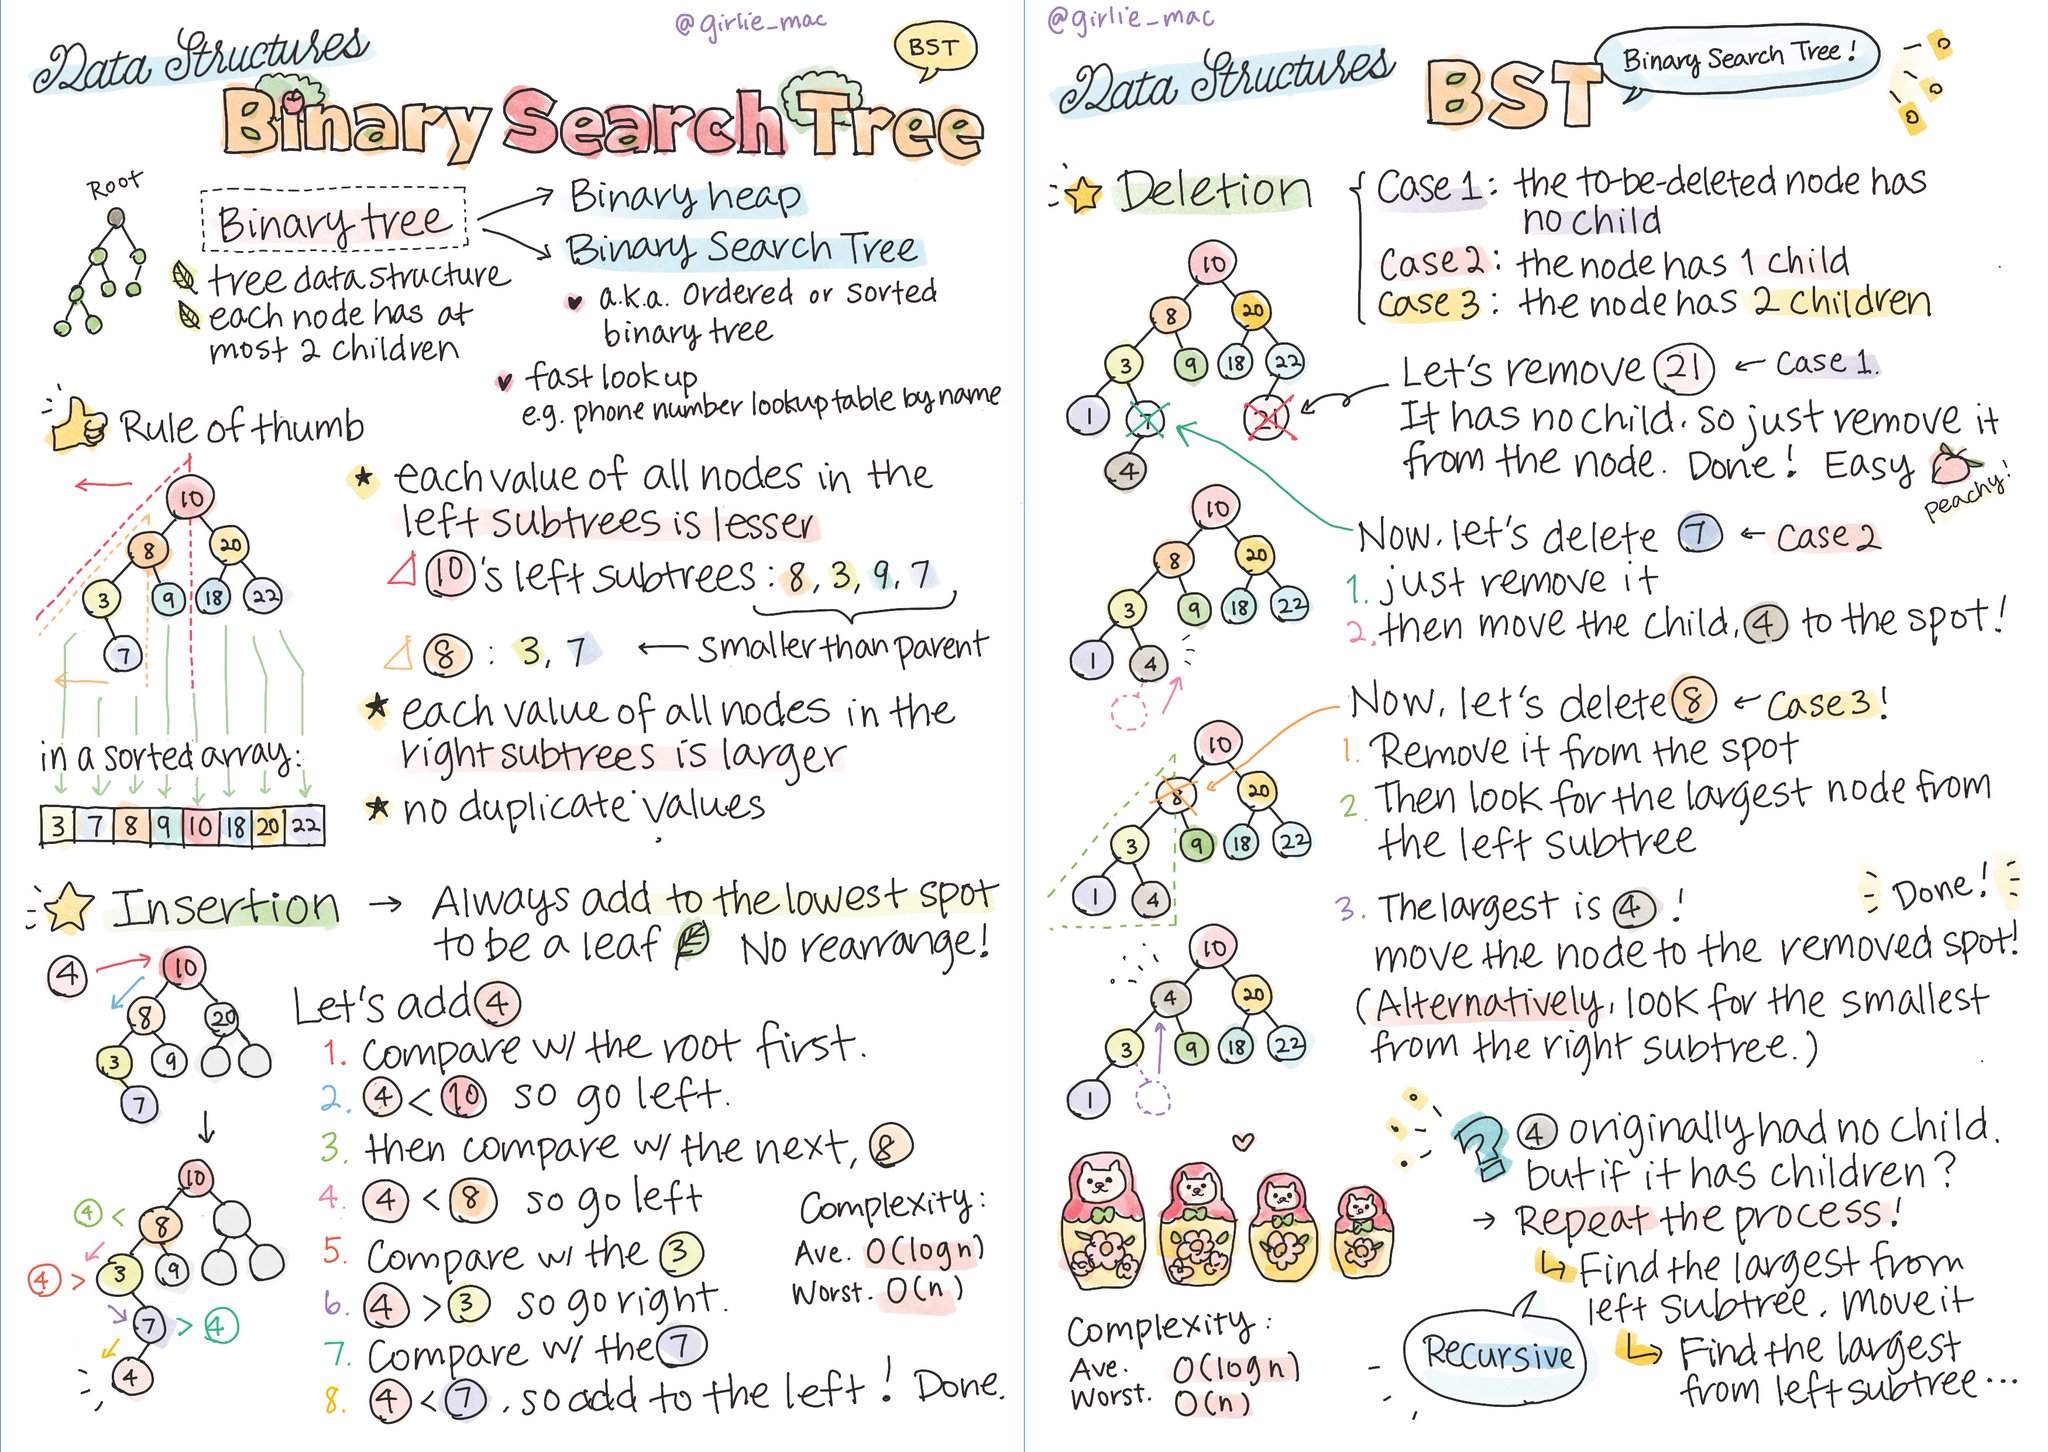 @girlie_mac
Data Structures
BST
Binary Search Tree
Root
Binary tree
Binary heap
Binary Search Tree
tree data structure
each node has at
most 2 children
a.k.a. ordered or sorted
binary tree
fast lookup
e.g. phone number lookup table by name
Rule of thumb
10
8 20
3 9 18 22
7
in a sorted array:
3 7 8 9 10 18 20 22
each value of all nodes in the
left subtrees is lesser
10's left subtrees: 8, 3, 9, 7
8: 3, 7 ← smaller than parent
each value of all nodes in the
right subtrees is larger
no duplicate values
Insertion → Always add to the lowest spot
to be a leaf No rearrange!
4 10
8 20
3 9
7
10
4 < 8
4 > 3 9
7 > 4
4
Let's add 4
1. Compare w/ the root first.
2. 4 < 10 so go left.
3. then compare w/ the next, 8
4. 4 < 8 so go left
5. Compare w/ the 3
6. 4 > 3 so go right.
7. Compare w/ the 7
8. 4 < 7, so add to the left! Done.
Complexity:
Ave. O(log n)
Worst. O(n)
@girlie_mac
Data Structures
BST
Binary Search Tree!
Deletion
Case 1: the to-be-deleted node has
no child
Case 2: the node has 1 child
Case 3: the node has 2 children
10
8 20
3 9 18 22
1 7 21
4
Let's remove 21 ← Case 1.
It has no child. So just remove it
from the node. Done! Easy
peachy!
10
8 20
3 9 18 22
1 4
Now, let's delete 7 ← Case 2
1. just remove it
2. then move the child, 4 to the spot!
10
8 20
3 9 18 22
1 4
Now, let's delete 8 ← Case 3!
1. Remove it from the spot
2. Then look for the largest node from
the left subtree
3. The largest is 4!
move the node to the removed spot!
Done!
(Alternatively, look for the smallest
from the right subtree.)
10
4 20
3 9 18 22
1
? 4 originally had no child.
but if it has children?
→ Repeat the process!
Find the largest from
left subtree. Move it
Find the largest
from left subtree...
Recursive
Complexity:
Ave. O(log n)
Worst. O(n)